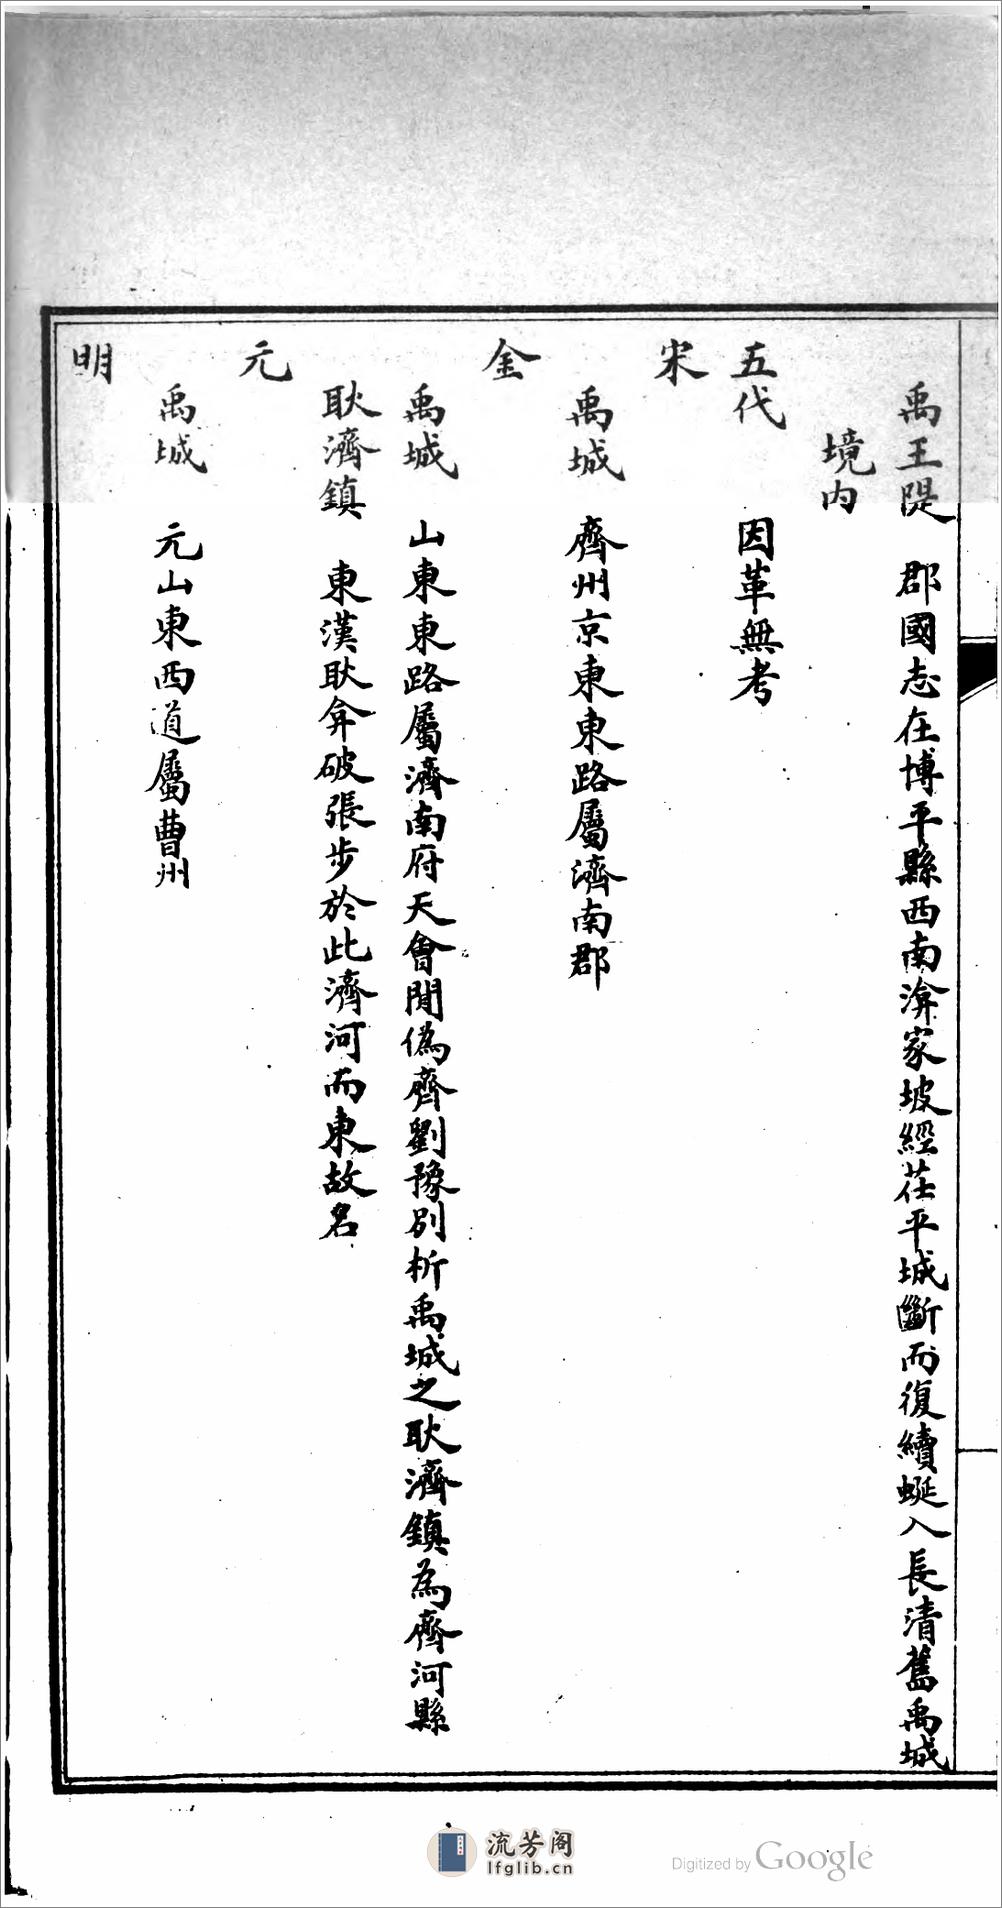 禹王隄　郡國志在博平縣西南渰家坡經茌平城斷而復續蜒入長清舊禹城
境內
五代　因革無考
宋
禹城　齊州京東東路屬濟南郡
金
禹城　山東東路屬濟南府天會間偽齊劉豫別析禹城之耿濟鎮為齊河縣
耿濟鎮　東漢耿弇破張步於此濟河而東故名
元
禹城　元山東西道屬曹州
明
流芳阁
lfglib.cn
Digitized by Google